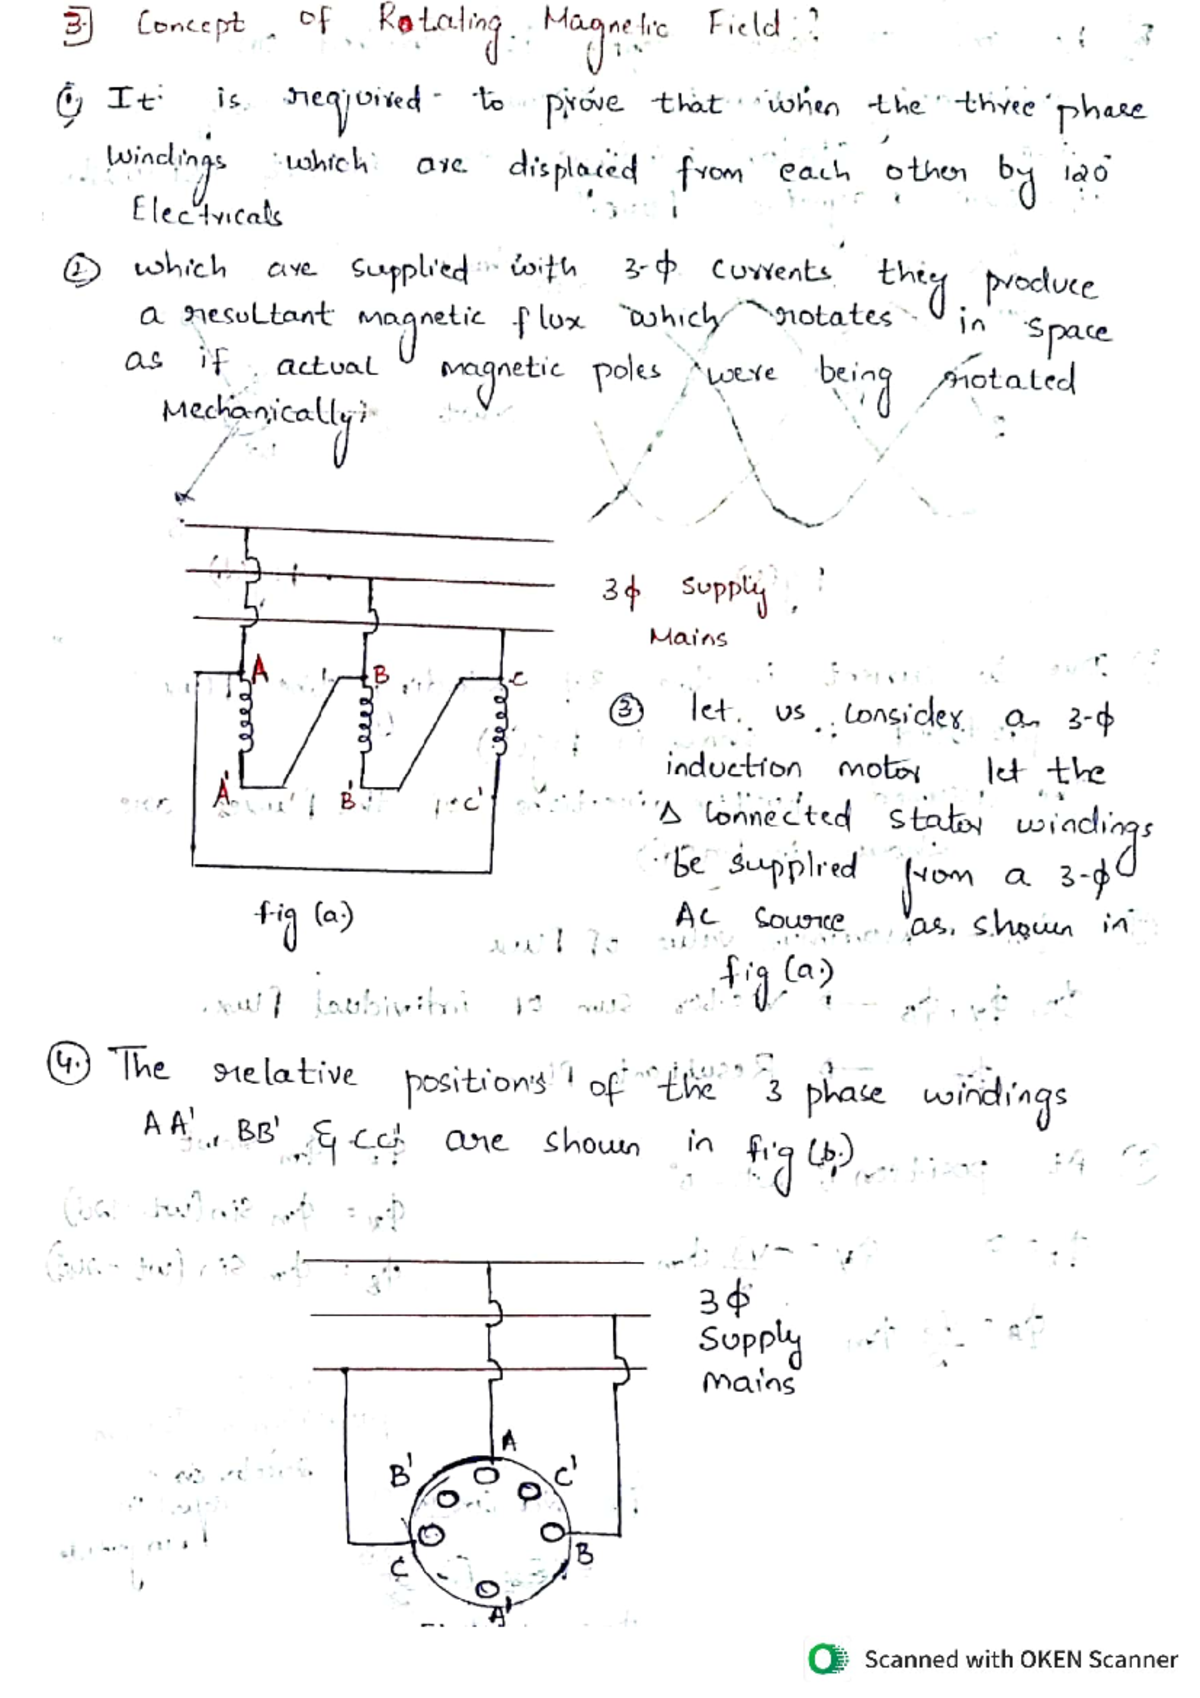 3] Concept of Rotating Magnetic Field:?
① It is required to prove that when the three phase
windings which are displaced from each other by 120°
Electricals
② which are supplied with 3-ϕ currents they produce
a resultant magnetic flux which rotates in space
as if actual magnetic poles were being rotated
Mechanically;
3ϕ Supply
Mains
A B C
A' B' C'
fig (a.)
③ let us consider an 3-ϕ
induction motor let the
Δ connected stator windings
be supplied from a 3-ϕ
AC source as shown in
fig (a.)
④ The relative positions of the 3 phase windings
AA', BB' & CC' are shown in fig (b.)
3ϕ
Supply
mains
A
B' C'
C B
A'
Scanned with OKEN Scanner